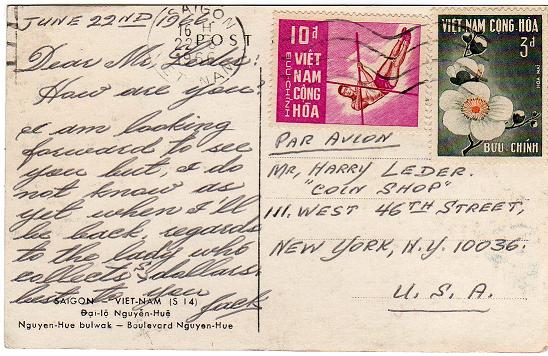 JUNE 22ND 1966.
Dear Mr.
How are you?
I am looking
forward to see
you but, I do
not know as
yet when I'll
be back, regards
to the lady who
collects dollars
to you
Jack
SAIGON VIET-NAM (S 14)
Đại-lộ Nguyễn-Huệ
Nguyen-Hue bulwak — Boulevard Nguyen-Hue
POST
SAIGON
16 H
22
1966
VIET NAM
10đ
VIỆT
NAM
CỘNG
HÒA
BƯU-CHÍNH
VIỆT-NAM CỘNG-HÒA
3đ
BƯU CHÍNH
PAR AVION
MR, HARRY LEDER.
"COIN SHOP"
111. WEST 46TH STREET,
NEW YORK, N.Y. 10036.
U.S.A.